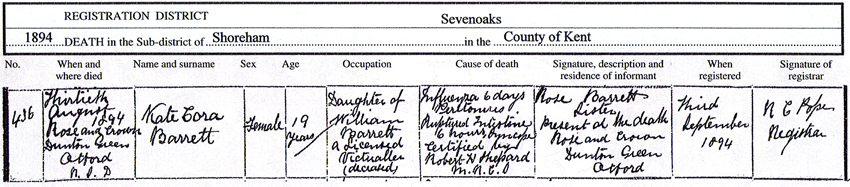 REGISTRATION DISTRICT Sevenoaks
1894 DEATH in the Sub-district of Shoreham in the County of Kent
No. When and where died Name and surname Sex Age Occupation Cause of death Signature, description and residence of informant When registered Signature of registrar
436
Thirtieth
August
1894
Rose and Crown
Dunton Green
Otford
R. S. D
Kate Cora
Barrett
Female
19
years
Daughter of
William
Barrett
a Licensed
Victualler
(deceased)
Influenza 6 days
Peritonitis
Ruptured Intestine
6 hours Syncope
Certified by
Robert N Sheppard
M.R.C.S
Rose Barrett
Sister
Present at the death
Rose and Crown
Dunton Green
Otford
Third
September
1894
N C Pope
Registrar